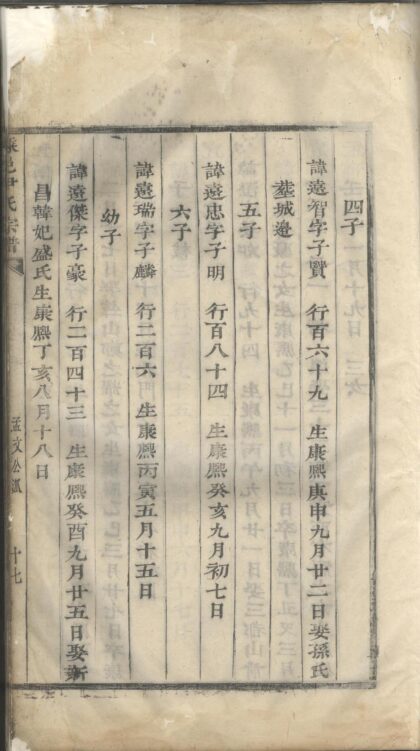 四子
諱遠智字子賢 行百六十九 生康熙庚申九月廿二日娶孫氏
塟城邉
五子
諱遠忠字子明 行百八十四 生康熙癸亥九月初七日
六子
諱遠瑞字子麟 行二百六 生康熙丙寅五月十五日
幼子
諱遠傑字子豪 行二百四十三 生康熙癸酉九月廿五日娶新
昌韓妃盛氏生康熙丁亥八月十八日
邑尹氏宗譜 孟文公派 十七